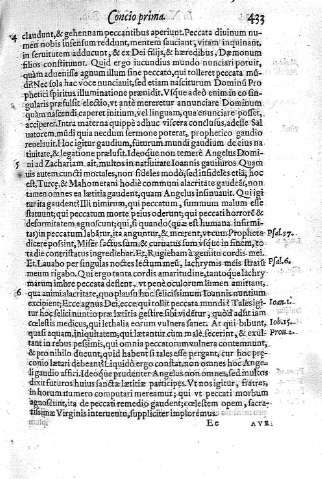 Concio prima. 433
4 claudunt, & gehennam peccantibus aperiunt. Peccata diuinum nu-
men nobis infensum reddunt, mentem sauciant, vitam inquinant,
in seruitutem adducunt, & ex Dei filijs, & hæredibus, Dæmonum
filios constituunt. Quid ergo iucundius mundo nunciari potuit,
quàm adesse agnum illum sine peccato, qui tolleret peccata mū-
di? Nec sola hac voce nunciauit, sed etiam nasciturum Dominū Pro
phetici spiritus illuminatione prænidit. Vsque adeò enim in eo sin-
gularis præfulsit electio, vt antè mereretur annunciare Dominum
quàm nasci: di caperet initium, vel linguam, qua enunciare posset,
acciperet. Intra materna quippè adhuc viscera conclusus, adesse Sal
uatorem mūdi quia necdum sermone poterat, prophetico gaudio
reuelauit. Hoc igitur gaudium, futurum mundi gaudium de eius na
tiuitate, & legatione præfulsit. Ideoque non temerè Angelus Domi-
5 ni ad Zachariam ait, multos in natiuitate Ioannis gauisuros. Quam
uis autem cuncti mortales, non fideles modò, sed infideles etiā, hoc
est, Turcę, & Mahometani hodiè communi alacritate gaudeāt, non
tamen omnes ea lætitia gaudent, quam Angelus insinuauit. Qui igi
tur ita gaudent? Illi nimirum, qui peccatum, summum malum esse
statuunt; qui peccatum morte peius oderunt; qui peccati horrorē &
deformitatem agnoscunt; qui, si quando (quæ est humana infirmi-
tas) in peccatum labātur, ita anguntur, & mœrent, vt cum Propheta
dicere possint, Miser factus sum, & curuatus sum vsque in finem, to- Psal. 37.
ta die contristatus ingrediebar. Et, Rugiebam à gemitu cordis mei.
Et. Lauabo per singulas noctes lectum meū, lachrymis meis stratū Psal. 6.
meum rigabo. Qui ergo tanta cordis amaritudine, tantoque lachry
marum imbre peccata deflent, vt penè oculorum lumen amittant,
6 qua animi alacritate, quo plausu hoc felicissimum Ioannis nuntium
excipient; Ecce agnus Dei, ecce qui tollit peccata mundi? Tales igi Ioan. 1.
tur hoc felici nuntio præ lætitia gestire sibi vidētur, quòd adsit iam
cœlestis medicus, qui lethalia eorum vulnera sanet. At qui bibunt, Iob. 15.
quasi aquam, iniquitatem, qui lætantur cùm malè fecerint, & exul- Prou. 2.
tant in rebus pessimis, qui omnia peccatorum vulnera contemnunt,
& pro nihilo ducunt, quid habent si tales esse pergant, cur hoc præ-
conio lætari debeant? Liquidò ergo constat, non omnes hoc Ange-
li gaudio affici. Ideoque prudenter Angelus non omnes, sed multos
dixit futuros huius sanctæ lætitiæ participes. Vt nos igitur, fratres,
in horum numero computari mereamur; qui vt peccati morbum
agnoscunt, ita de peccati remedio gaudent; cœlestem opem, sacra-
tissimæ Virginis interuentu, suppliciter implorēmus.
Ee AVE